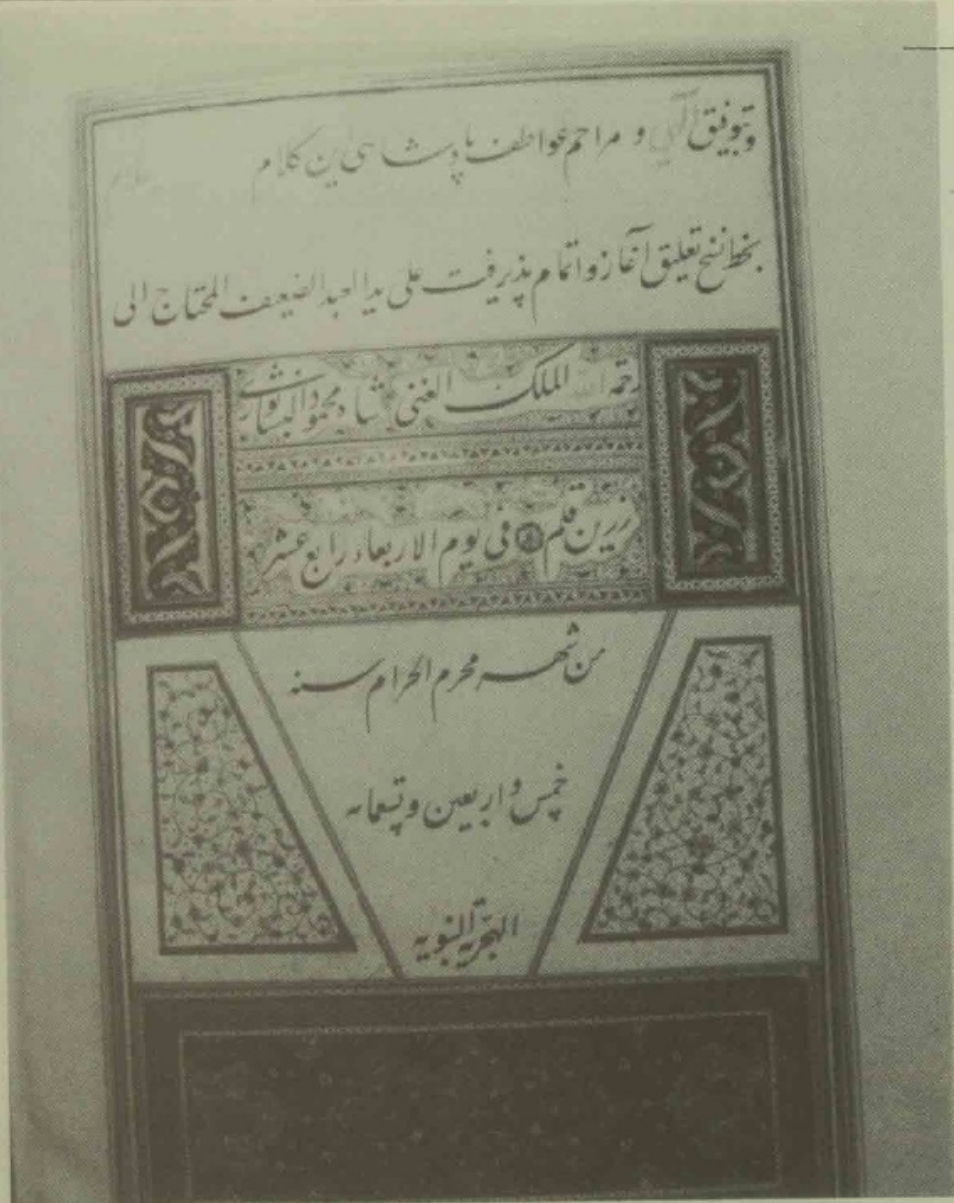 و بتوفیق آلهی و مراحم عواطف پادشاهی این کلام
بخط نسخ تعلیق آغاز و اتمام پذیرفت علی ید العبد الضعیف المحتاج الی
رحمة الله الملک الغنی شاه محمود النیشابوری
زرین قلم فی یوم الاربعاء رابع عشر
من شهر محرم الحرام سنه
خمس و اربعین و تسعمایه
الهجریة النبویه